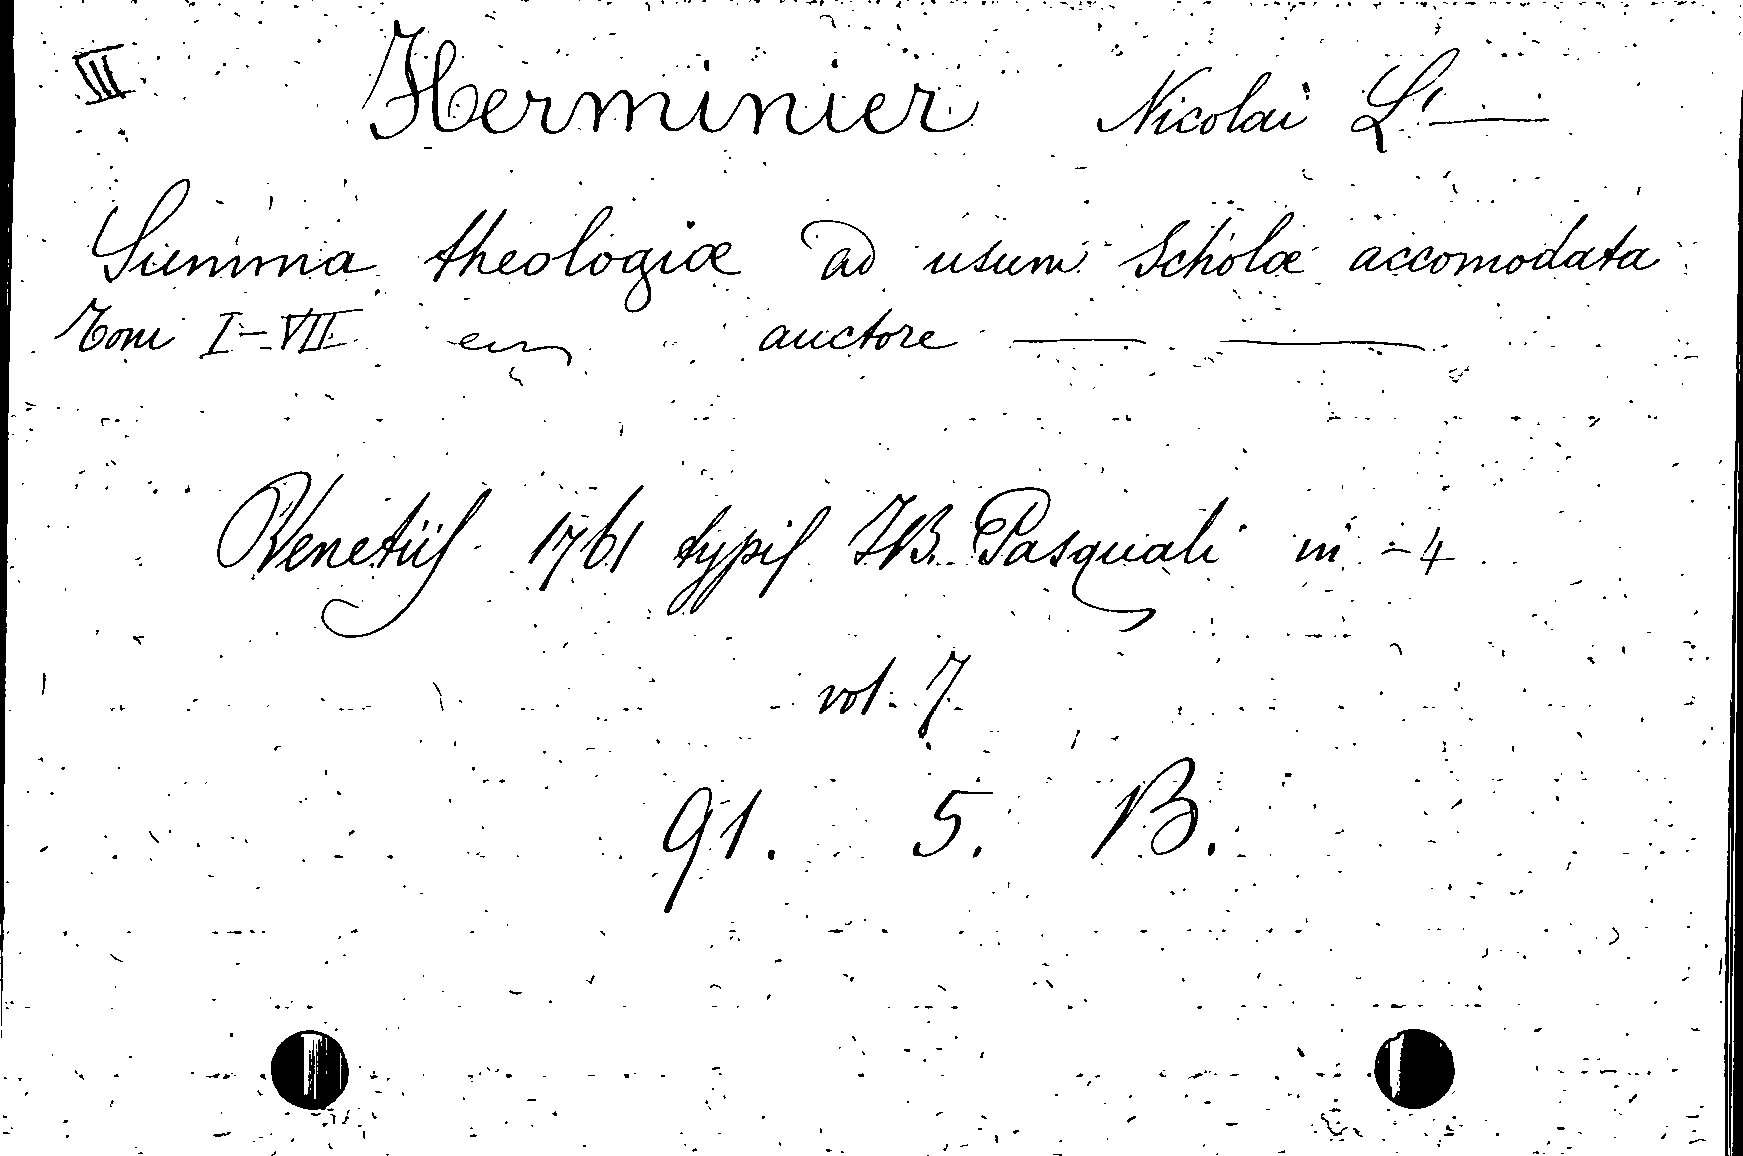 VII Herminier Nicolai L'—
Summa theologiæ ad usum Scholæ accomodata
Tomi I-VII auctore — —
Venetiis 1761 typis J.B. Pasquali in -4
vol. 7
91. 5. B.